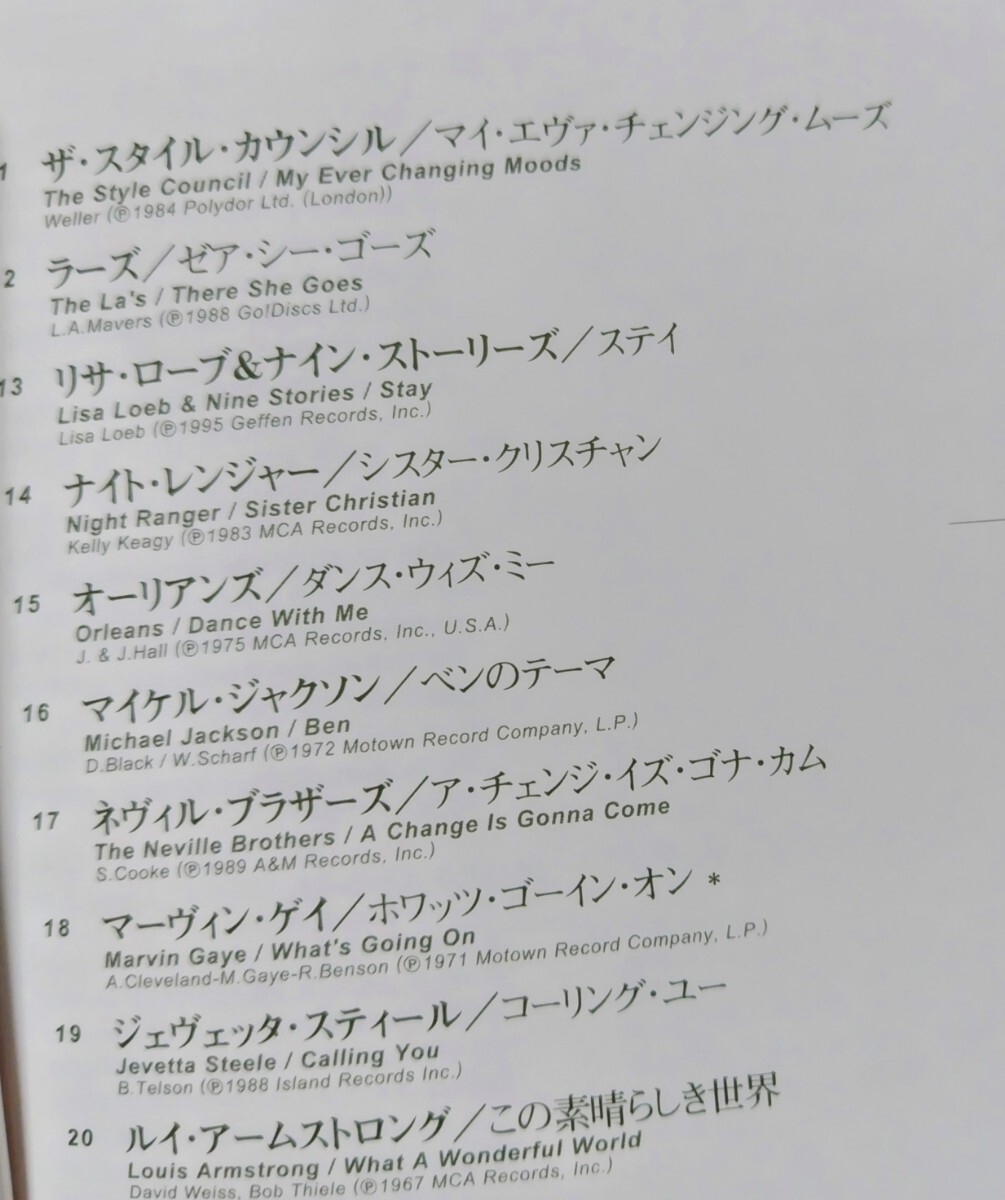 1 ザ・スタイル・カウンシル／マイ・エヴァ・チェンジング・ムーズ
The Style Council / My Ever Changing Moods
Weller (℗1984 Polydor Ltd. (London))
2 ラーズ／ゼア・シー・ゴーズ
The La's / There She Goes
L.A.Mavers (℗1988 Go!Discs Ltd.)
13 リサ・ローブ&ナイン・ストーリーズ／ステイ
Lisa Loeb & Nine Stories / Stay
Lisa Loeb (℗1995 Geffen Records, Inc.)
14 ナイト・レンジャー／シスター・クリスチャン
Night Ranger / Sister Christian
Kelly Keagy (℗1983 MCA Records, Inc.)
15 オーリアンズ／ダンス・ウィズ・ミー
Orleans / Dance With Me
J. & J.Hall (℗1975 MCA Records, Inc., U.S.A.)
16 マイケル・ジャクソン／ベンのテーマ
Michael Jackson / Ben
D.Black / W.Scharf (℗1972 Motown Record Company, L.P.)
17 ネヴィル・ブラザーズ／ア・チェンジ・イズ・ゴナ・カム
The Neville Brothers / A Change Is Gonna Come
S.Cooke (℗1989 A&M Records, Inc.)
18 マーヴィン・ゲイ／ホワッツ・ゴーイン・オン *
Marvin Gaye / What's Going On
A.Cleveland-M.Gaye-R.Benson (℗1971 Motown Record Company, L.P.)
19 ジェヴェッタ・スティール／コーリング・ユー
Jevetta Steele / Calling You
B.Telson (℗1988 Island Records Inc.)
20 ルイ・アームストロング／この素晴らしき世界
Louis Armstrong / What A Wonderful World
David Weiss, Bob Thiele (℗1967 MCA Records, Inc.)